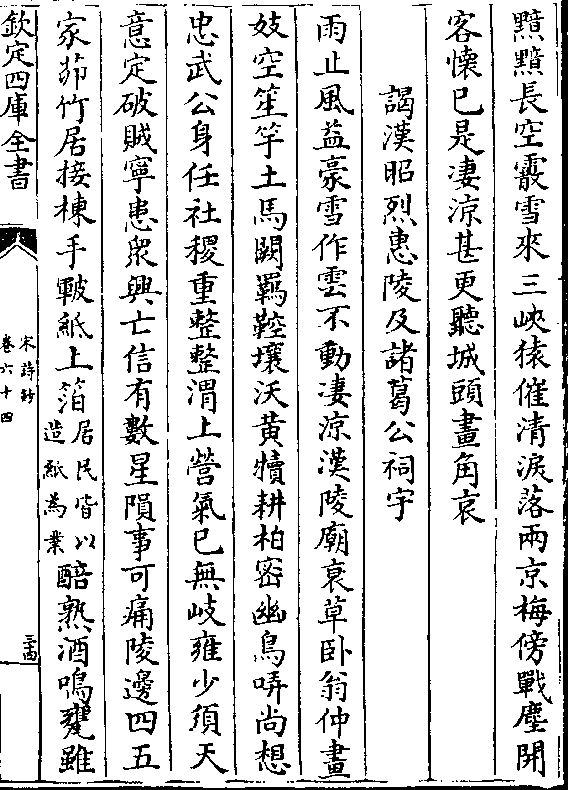 黯黯長空霰雪來三峽猿催清淚落兩京梅傍戰塵開
客懷已是凄涼甚更聽城頭畫角哀
謁漢昭烈惠陵及諸葛公祠宇
雨止風益豪雪作雲不動凄涼漢陵廟衰草卧翁仲畫
妓空笙竽土馬闕羈鞚壤沃黃犢耕柏密幽鳥哢尚想
忠武公身任社稷重整整渭上營氣已無岐雍少須天
意定破賊寧患衆興亡信有數星隕事可痛陵邊四五
家茆竹居接棟手皸紙上箔居民皆以造紙為業醅熟酒鳴甕雖
欽定四庫全書
宋詩鈔
卷六十四
三四